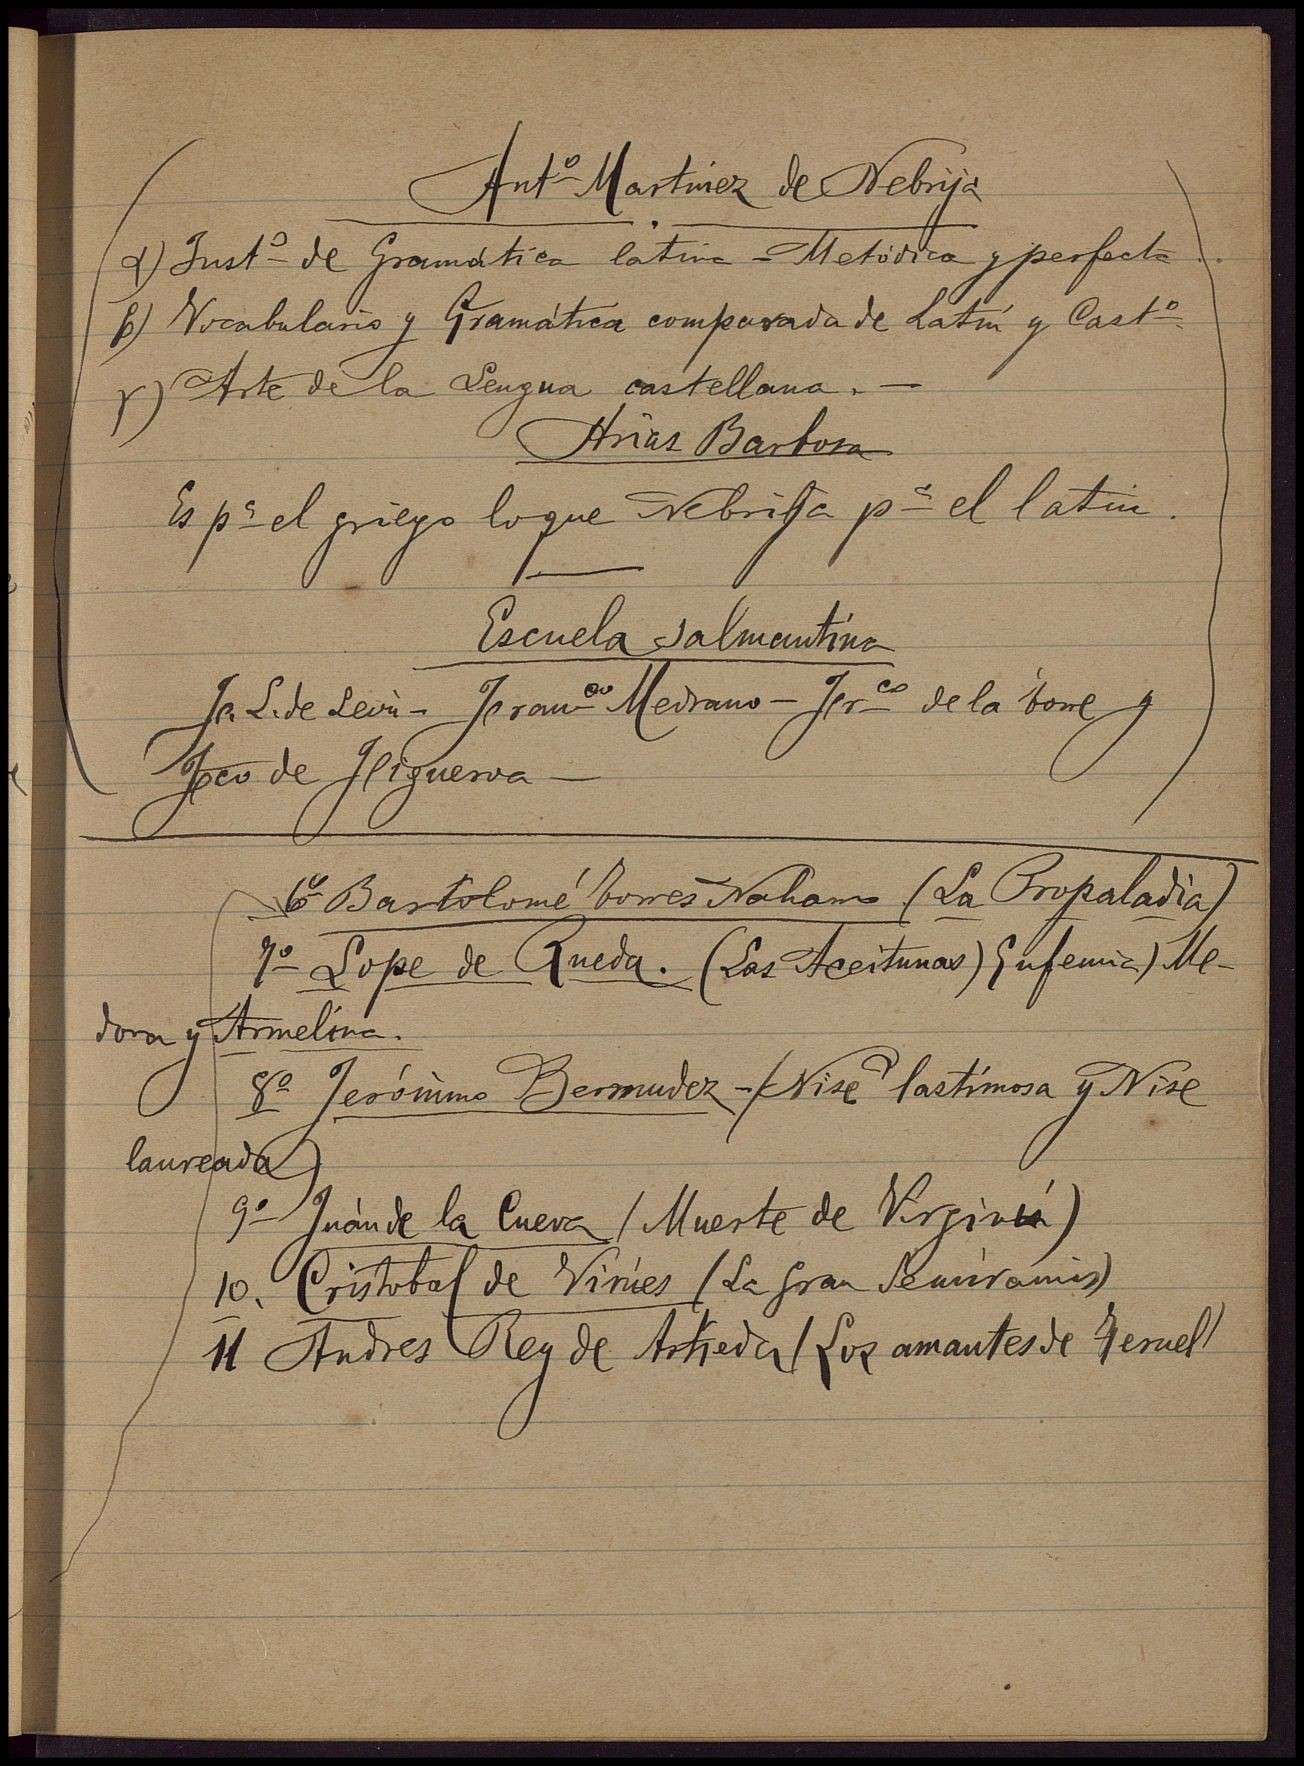 Antº Martinez de Nebrija
α) Instº de Gramática latina - Metódica y perfecta ..
β) Vocabulario y Gramática comparada de Latín y Castº.
γ) Arte de la Lengua castellana. -
Arias Barbosa
Es pª el griego lo que Nebrija pª el latin.
Escuela salmantina
Fr. L. de León - Franco Medrano - Frco de la Torre y
Fco de Figueroa -
6º Bartolomé Torres Naharro (La Propaladia)
7º Lope de Rueda. (Las Aceitunas) Eufemia) Me-
dora y Armelina.
8º Jerónimo Bermudez - (Nise lastimosa y Nise
laureada)
9º Juán de la Cueva (Muerte de Virginia)
10. Cristobal de Virués (La Gran Semíramis)
11 Andres Rey de Artieda (Los amantes de Teruel)